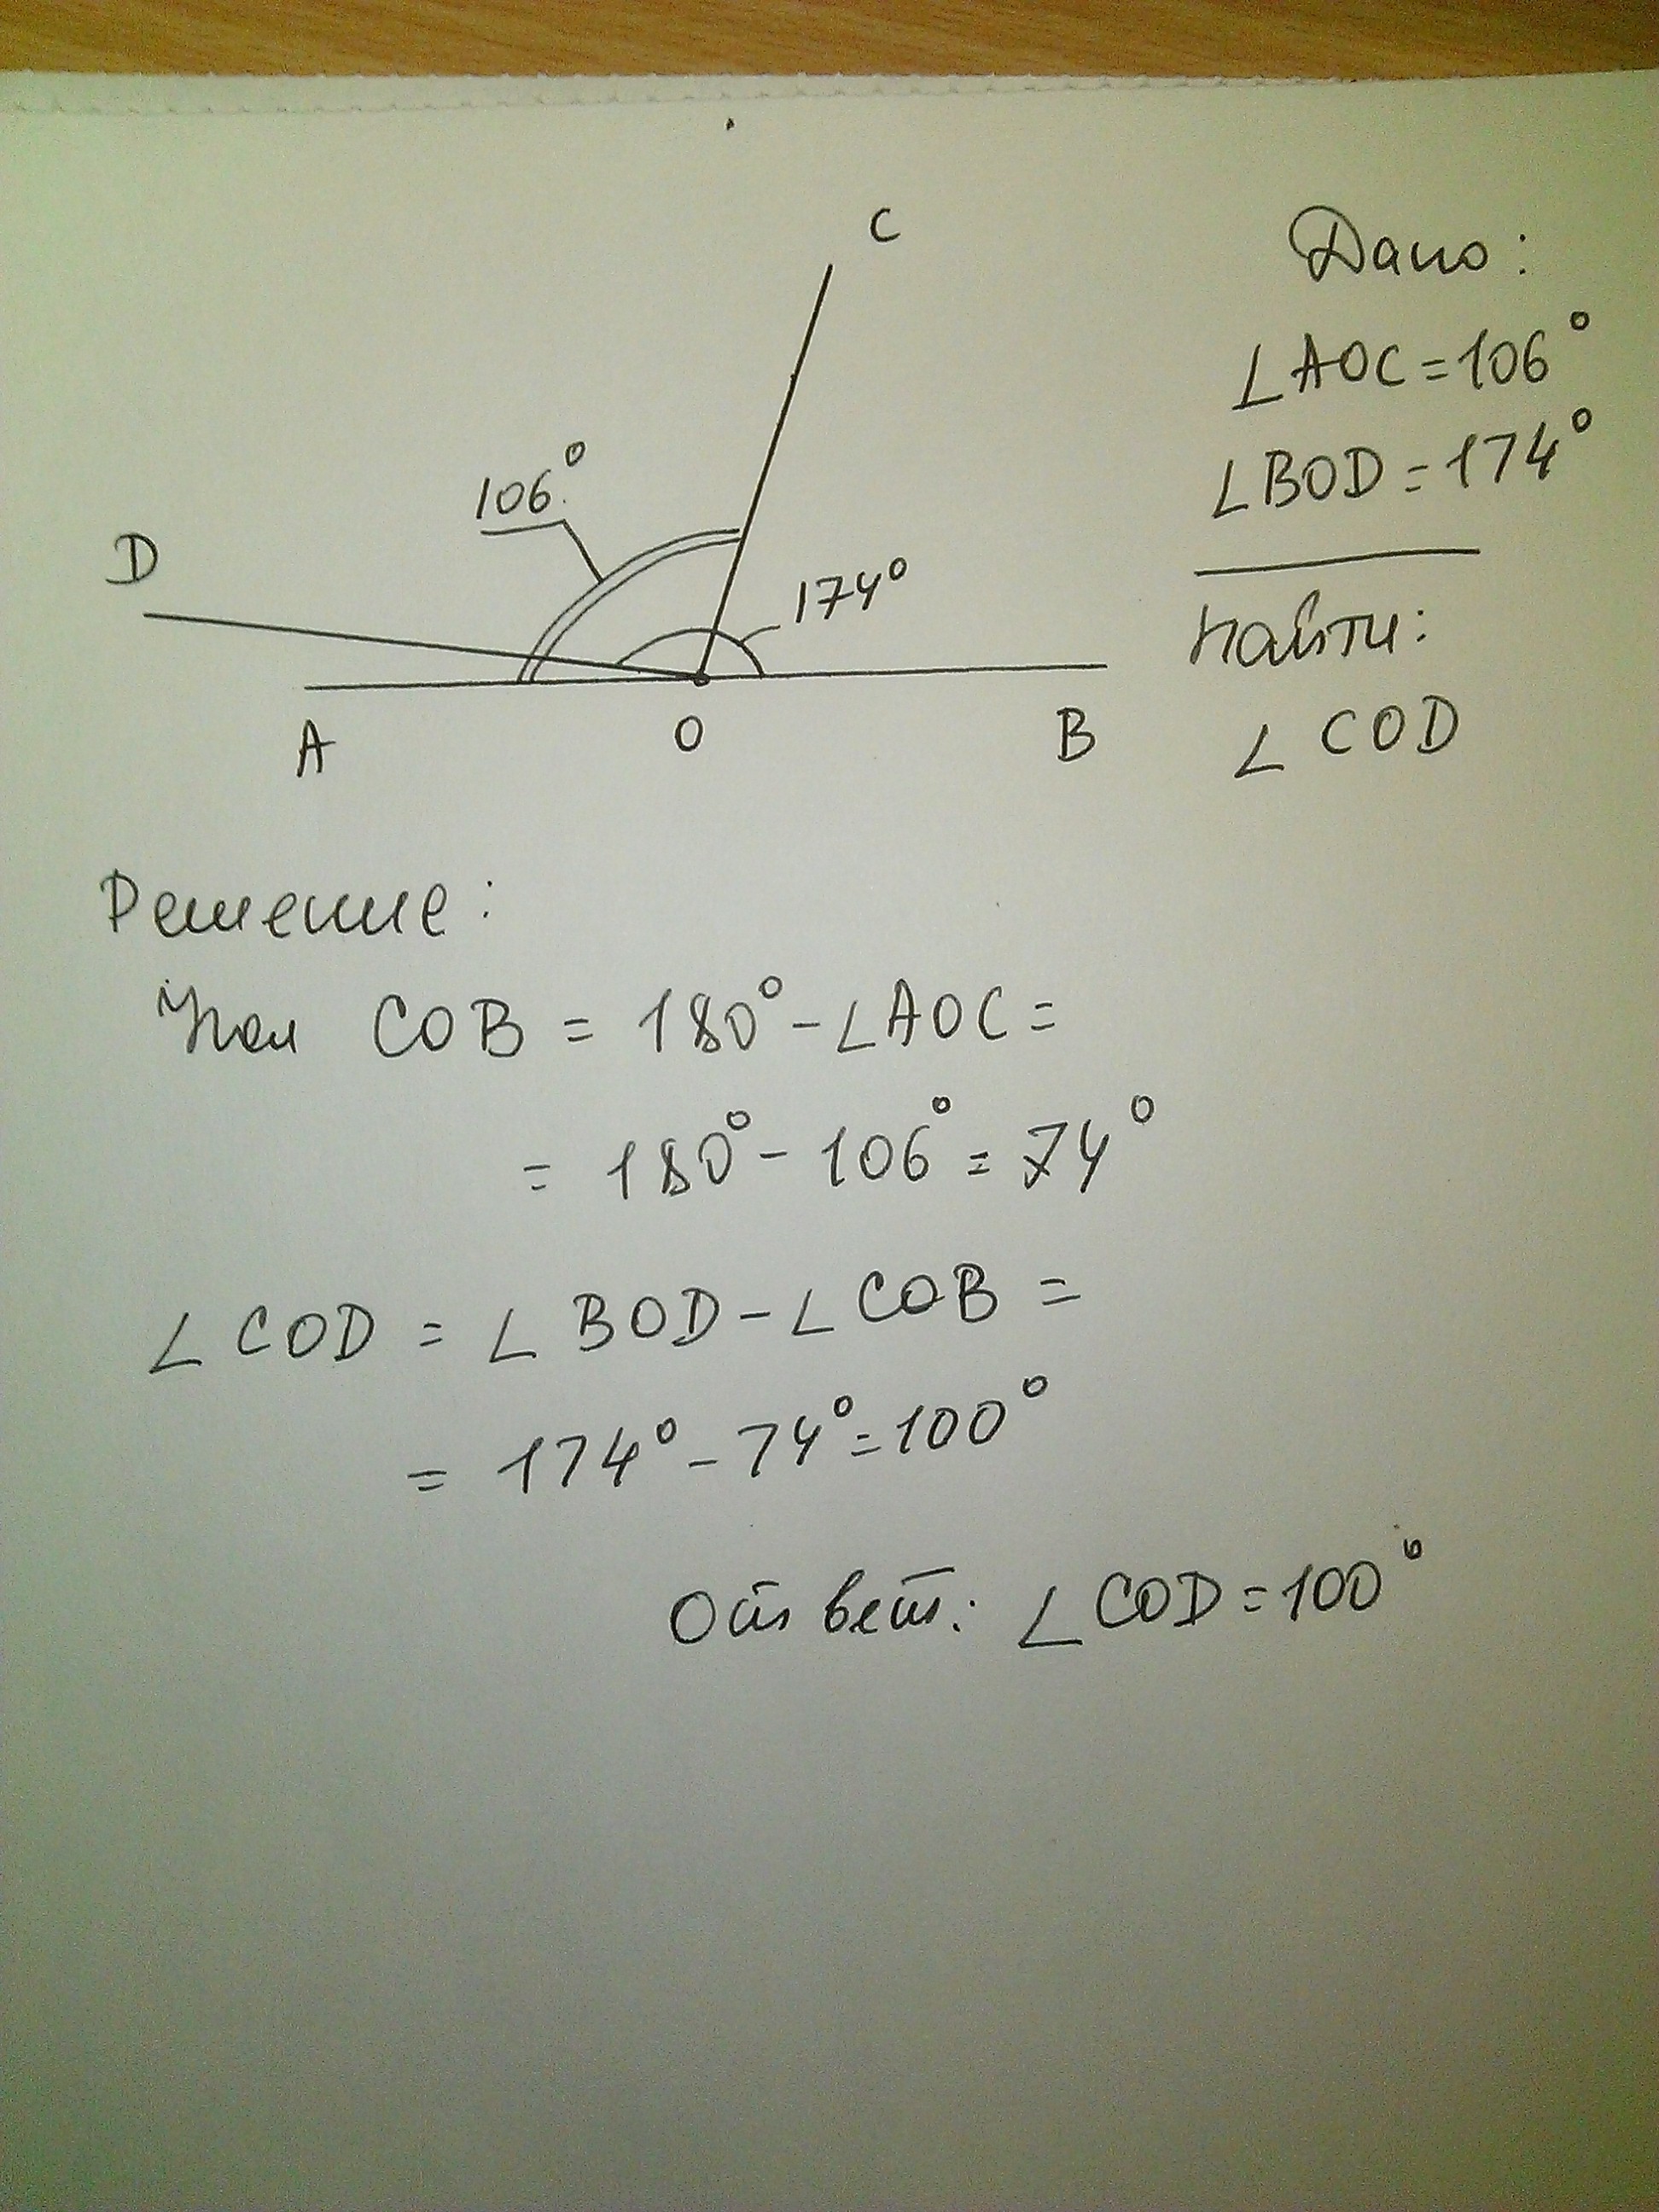 C
106°
174°
D
A
O
B
Дано:
∠AOC=106°
∠BOD=174°
Найти:
∠ COD
Решение:
Угол COB = 180° - ∠AOC =
= 180° - 106° = 74°
∠ COD = ∠ BOD - ∠ COB =
= 174° - 74° = 100°
Ответ: ∠ COD = 100°